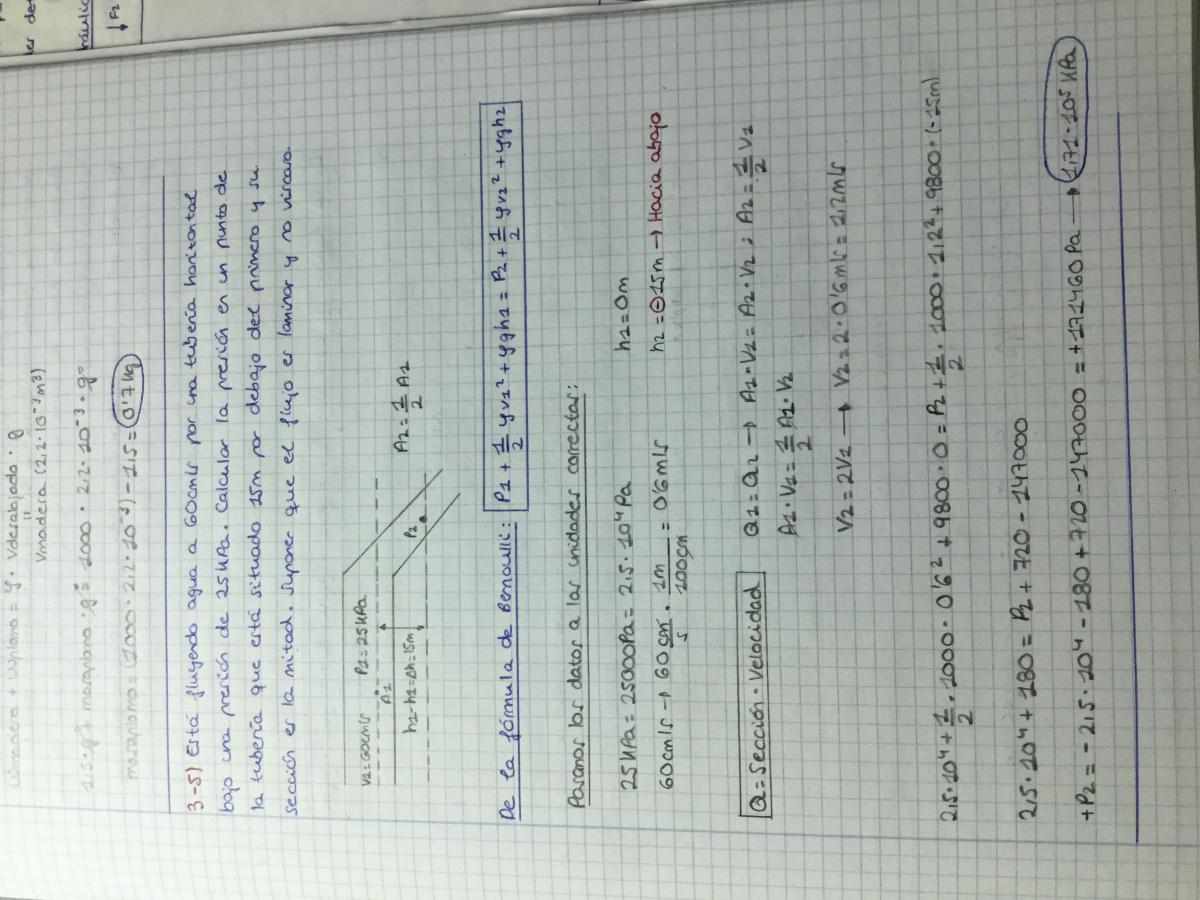 ler de
háulic
↓F2
· Vdesalojado · g
Vmadera (2,2·10⁻³m³)
2,5·g + masaplomo·g = 1000 · 2,2·10⁻³·g
masaplomo = (1000 · 2,2·10⁻³) - 1,5 = 0'7 Kg
3-5) Está fluyendo agua a 60cm/s por una tubería horizontal
bajo una presión de 25 KPa. Calcular la presión en un punto de
la tubería que está situado 15m por debajo del primero y su
sección es la mitad. Suponer que el flujo es laminar y no viscoso.
V1=60cm/s P1=25KPa
A1
h1-h2=Δh=15m
P2
A2=1/2 A1
De la fórmula de Bernoulli: P1 + 1/2 φv1² + φgh1 = P2 + 1/2 φv2² + φgh2
Pasamos los datos a las unidades correctas:
25KPa = 25000Pa = 2,5·10⁴ Pa h1=0m
60cm/s → 60 cm/s · 1m/100cm = 0'6m/s h2=⊖15m → Hacia abajo
Q=Sección·Velocidad Q1=Q2 → A1·V1=A2·V2; A2=1/2 V1
A1·V1=1/2 A1·V2
V2=2V1 → V2=2·0'6m/s=1,2m/s
2,5·10⁴+1/2·1000·0'6²+9800·0=P2+1/2·1000·1,2²+9800·(-15m)
2,5·10⁴+180=P2+720-147000
+P2=-2,5·10⁴-180+720-147000=+171460Pa → 1,71·10⁵ KPa